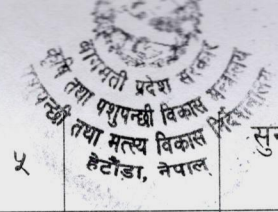 बागमती प्रदेश सरकार
कृषि तथा पशुपन्छी विकास मन्त्रालय
पशुपन्छी तथा मत्स्य विकास निर्देशनालय
हेटौंडा, नेपाल
५